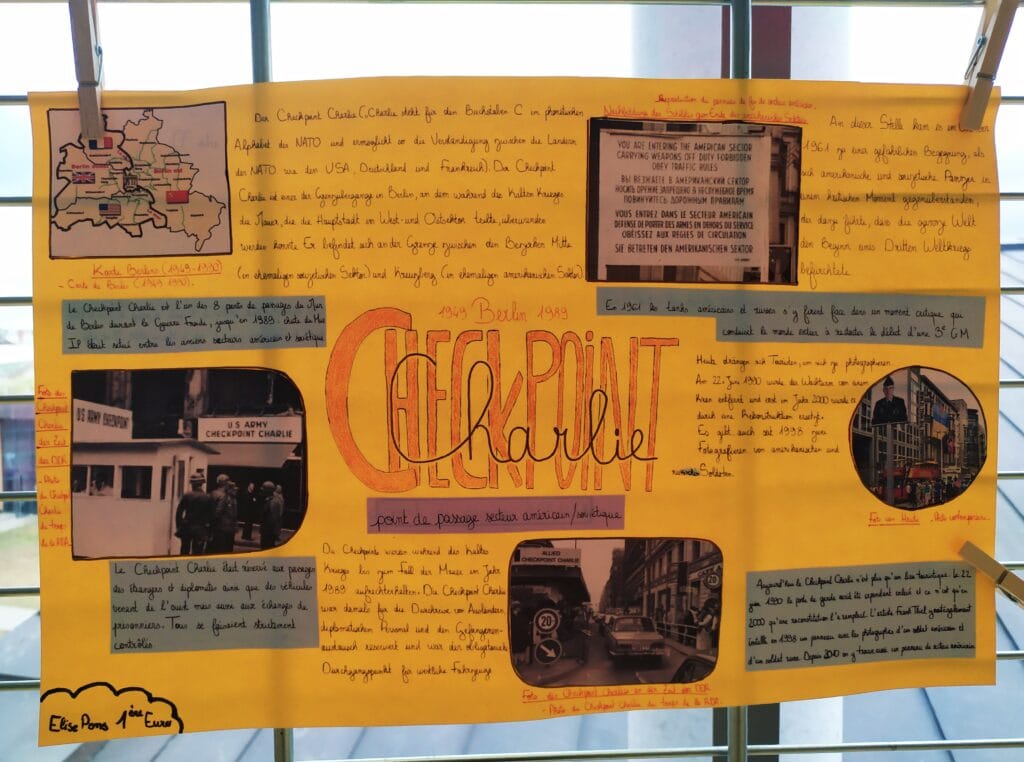 Der Checkpoint Charlie (Charlie steht für den Buchstaben C im phonetischen
Alphabet des NATO und ermöglicht so die Verständigung zwischen die Ländern
des NATO wie den USA, Deutschland und Frankreich). Der Checkpoint
Charlie ist einer der Grenzübergänge in Berlin, an dem während des Kalten Krieges
die Mauer, die die Hauptstadt in West- und Ostsektoren teilte, überwunden
werden konnte. Er befindet sich an der Grenze zwischen den Bezirken Mitte
(im ehemaligen sowjetischen Sektor) und Kreuzberg (im ehemaligen amerikanischen Sektor)
Berlin
Berlin est
Karte Berlins (1949-1990)
- Carte de Berlin (1949-1990).
Reproduction du panneau de fin de secteur américain.
Nachbildung des Schildes zum Ende des amerikanischen Sektors
YOU ARE ENTERING THE AMERICAN SECTOR
CARRYING WEAPONS OFF DUTY FORBIDDEN
OBEY TRAFFIC RULES
ВЫ ВЪЕЗЖАЕТЕ В АМЕРИКАНСКИЙ СЕКТОР
НОСИТЬ ОРУЖИЕ ЗАПРЕЩЕНО В НЕСЛУЖЕБНОЕ ВРЕМЯ
ПОВИНУЙТЕСЬ ДОРОЖНЫМ ПРАВИЛАМ
VOUS ENTREZ DANS LE SECTEUR AMERICAIN
DEFENSE DE PORTER DES ARMES EN DEHORS DU SERVICE
OBÉISSEZ AUX REGLES DE CIRCULATION
SIE BETRETEN DEN AMERIKANISCHEN SEKTOR
An dieser Stelle kam es im
1961 zu einer gefährlichen Begegnung, als
sich amerikanische und sowjetische Panzer in
einem kritischen Moment gegenüberstanden,
der dazu führte, dass die ganze Welt
den Beginn eines Dritten Weltkriegs
befürchtete.
Le Checkpoint Charlie est l'un des 8 points de passages du Mur
de Berlin durant la Guerre Froide, jusqu'en 1989: chute du Mur
Il était situé entre les anciens secteurs américain et soviétique
En 1961 les tanks américains et russes s'y firent face dans un moment critique qui
conduisit le monde entier à redouter le début d'une 3e GM
1949 Berlin 1989
CHECKPOINT
Charlie
point de passage secteur américain/soviétique
Foto des
Checkpoint
Charlie
der Zeit
der DDR
- Photo
du Checkpoint
Charlie
du temps
de la RDA
US ARMY CHECKPOINT
U.S ARMY
CHECKPOINT CHARLIE
Heute drängen sich Touristen, um sich zu photographieren.
Am 22. Juni 1990 wurde der Wachturm von einem
Kran entfernt und erst im Jahr 2000 wurde er
durch eine Rekonstruktion ersetzt.
Es gibt auch seit 1998 zwei
Fotografieren von amerikanischen und
russischen Soldaten.
Foto von Heute. Photo contemporaine.
Le Checkpoint Charlie était réservé aux passages
des étrangers et diplomates ainsi que des véhicules
venant de l'ouest mais aussi aux échanges de
prisonniers. Tous se faisaient strictement
contrôlés
Die Checkpoints waren während des Kalten
Krieges bis zum Fall der Mauer im Jahr
1989 aufrechterhalten. Die Checkpoint Charlie
war damals für die Durchreise von Ausländern,
diplomatischem Personal und den Gefangenen-
austausch reserviert und war der obligatorische
Durchgangspunkt für westliche Fahrzeuge
ALLIED
CHECKPOINT CHARLIE
20
20
Foto des Checkpoint Charlie in der Zeit der DDR
- Photo du Checkpoint Charlie du temps de la RDA.
Aujourd'hui le Checkpoint Charlie n'est plus qu'un lieu touristique. Le 22
juin 1990 le poste de garde avait été cependant enlevé et ce n'est qu'en
2000 qu'une reconstitution l'a remplacé. L'artiste Frank Thiel y a également
installé en 1998 un panneau avec les photographies d'un soldat américain et
d'un soldat russe. Depuis on y trouve aussi un panneau de secteur américain
Elise Pons 1ère Euro